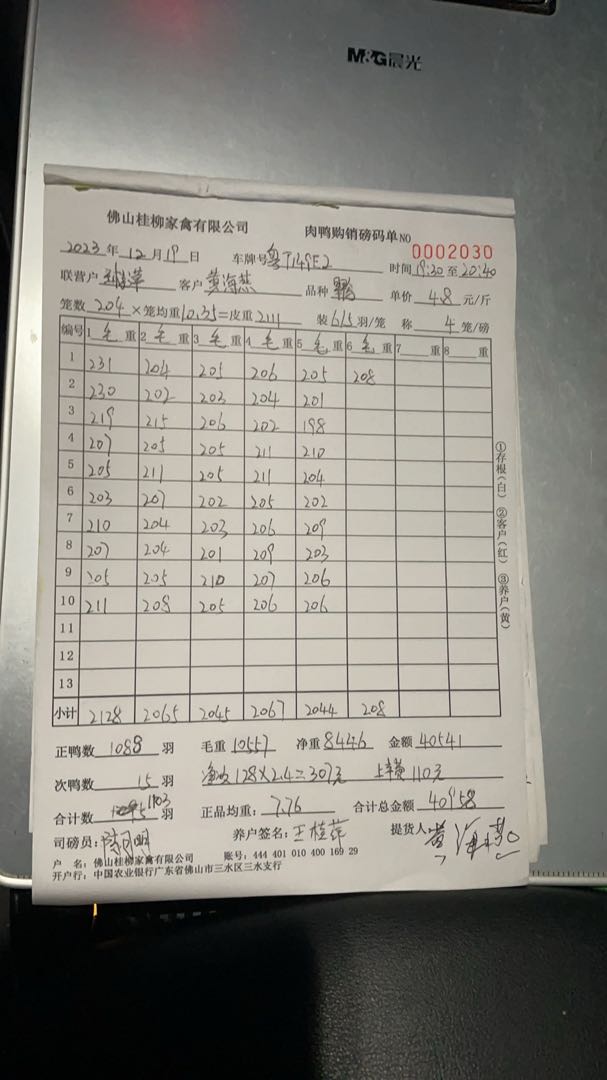 M&G晨光
佛山桂柳家禽有限公司 肉鸭购销磅码单 NO 0002030
2023年12月19日 车牌号 粤T149E2 时间 19:30 至 20:40
联营户 客户 黄海燕 品种 单价 4.8 元/斤
笼数 204 × 笼均重 10.35 = 皮重 2111 装 6/5 羽/笼 称 4 笼/磅
编号 1 毛 重 2 毛 重 3 毛 重 4 毛 重 5 毛 重 6 毛 重 7 重 8 重
1 231 204 205 206 205 208
2 230 202 203 204 201
3 219 215 206 202 198
4 207 205 205 211 210
5 205 211 205 211 204
6 203 207 202 205 202
7 210 204 203 206 209
8 207 204 201 209 203
9 205 205 210 207 206
10 211 208 205 206 206
11
12
13
小计 2128 2065 2045 2067 2044 208
①存根(白) ②客户(红) ③养户(黄)
正鸭数 1088 羽 毛重 10557 净重 8446 金额 40541
次鸭数 15 羽 128×2.4=307元 110元
合计数 1103 羽 正品均重: 7.76 合计总金额 40958
司磅员: 养户签名: 王桂萍 提货人 黄海燕
户 名: 佛山桂柳家禽有限公司 账号: 444 401 010 400 169 29
开户行: 中国农业银行广东省佛山市三水区三水支行